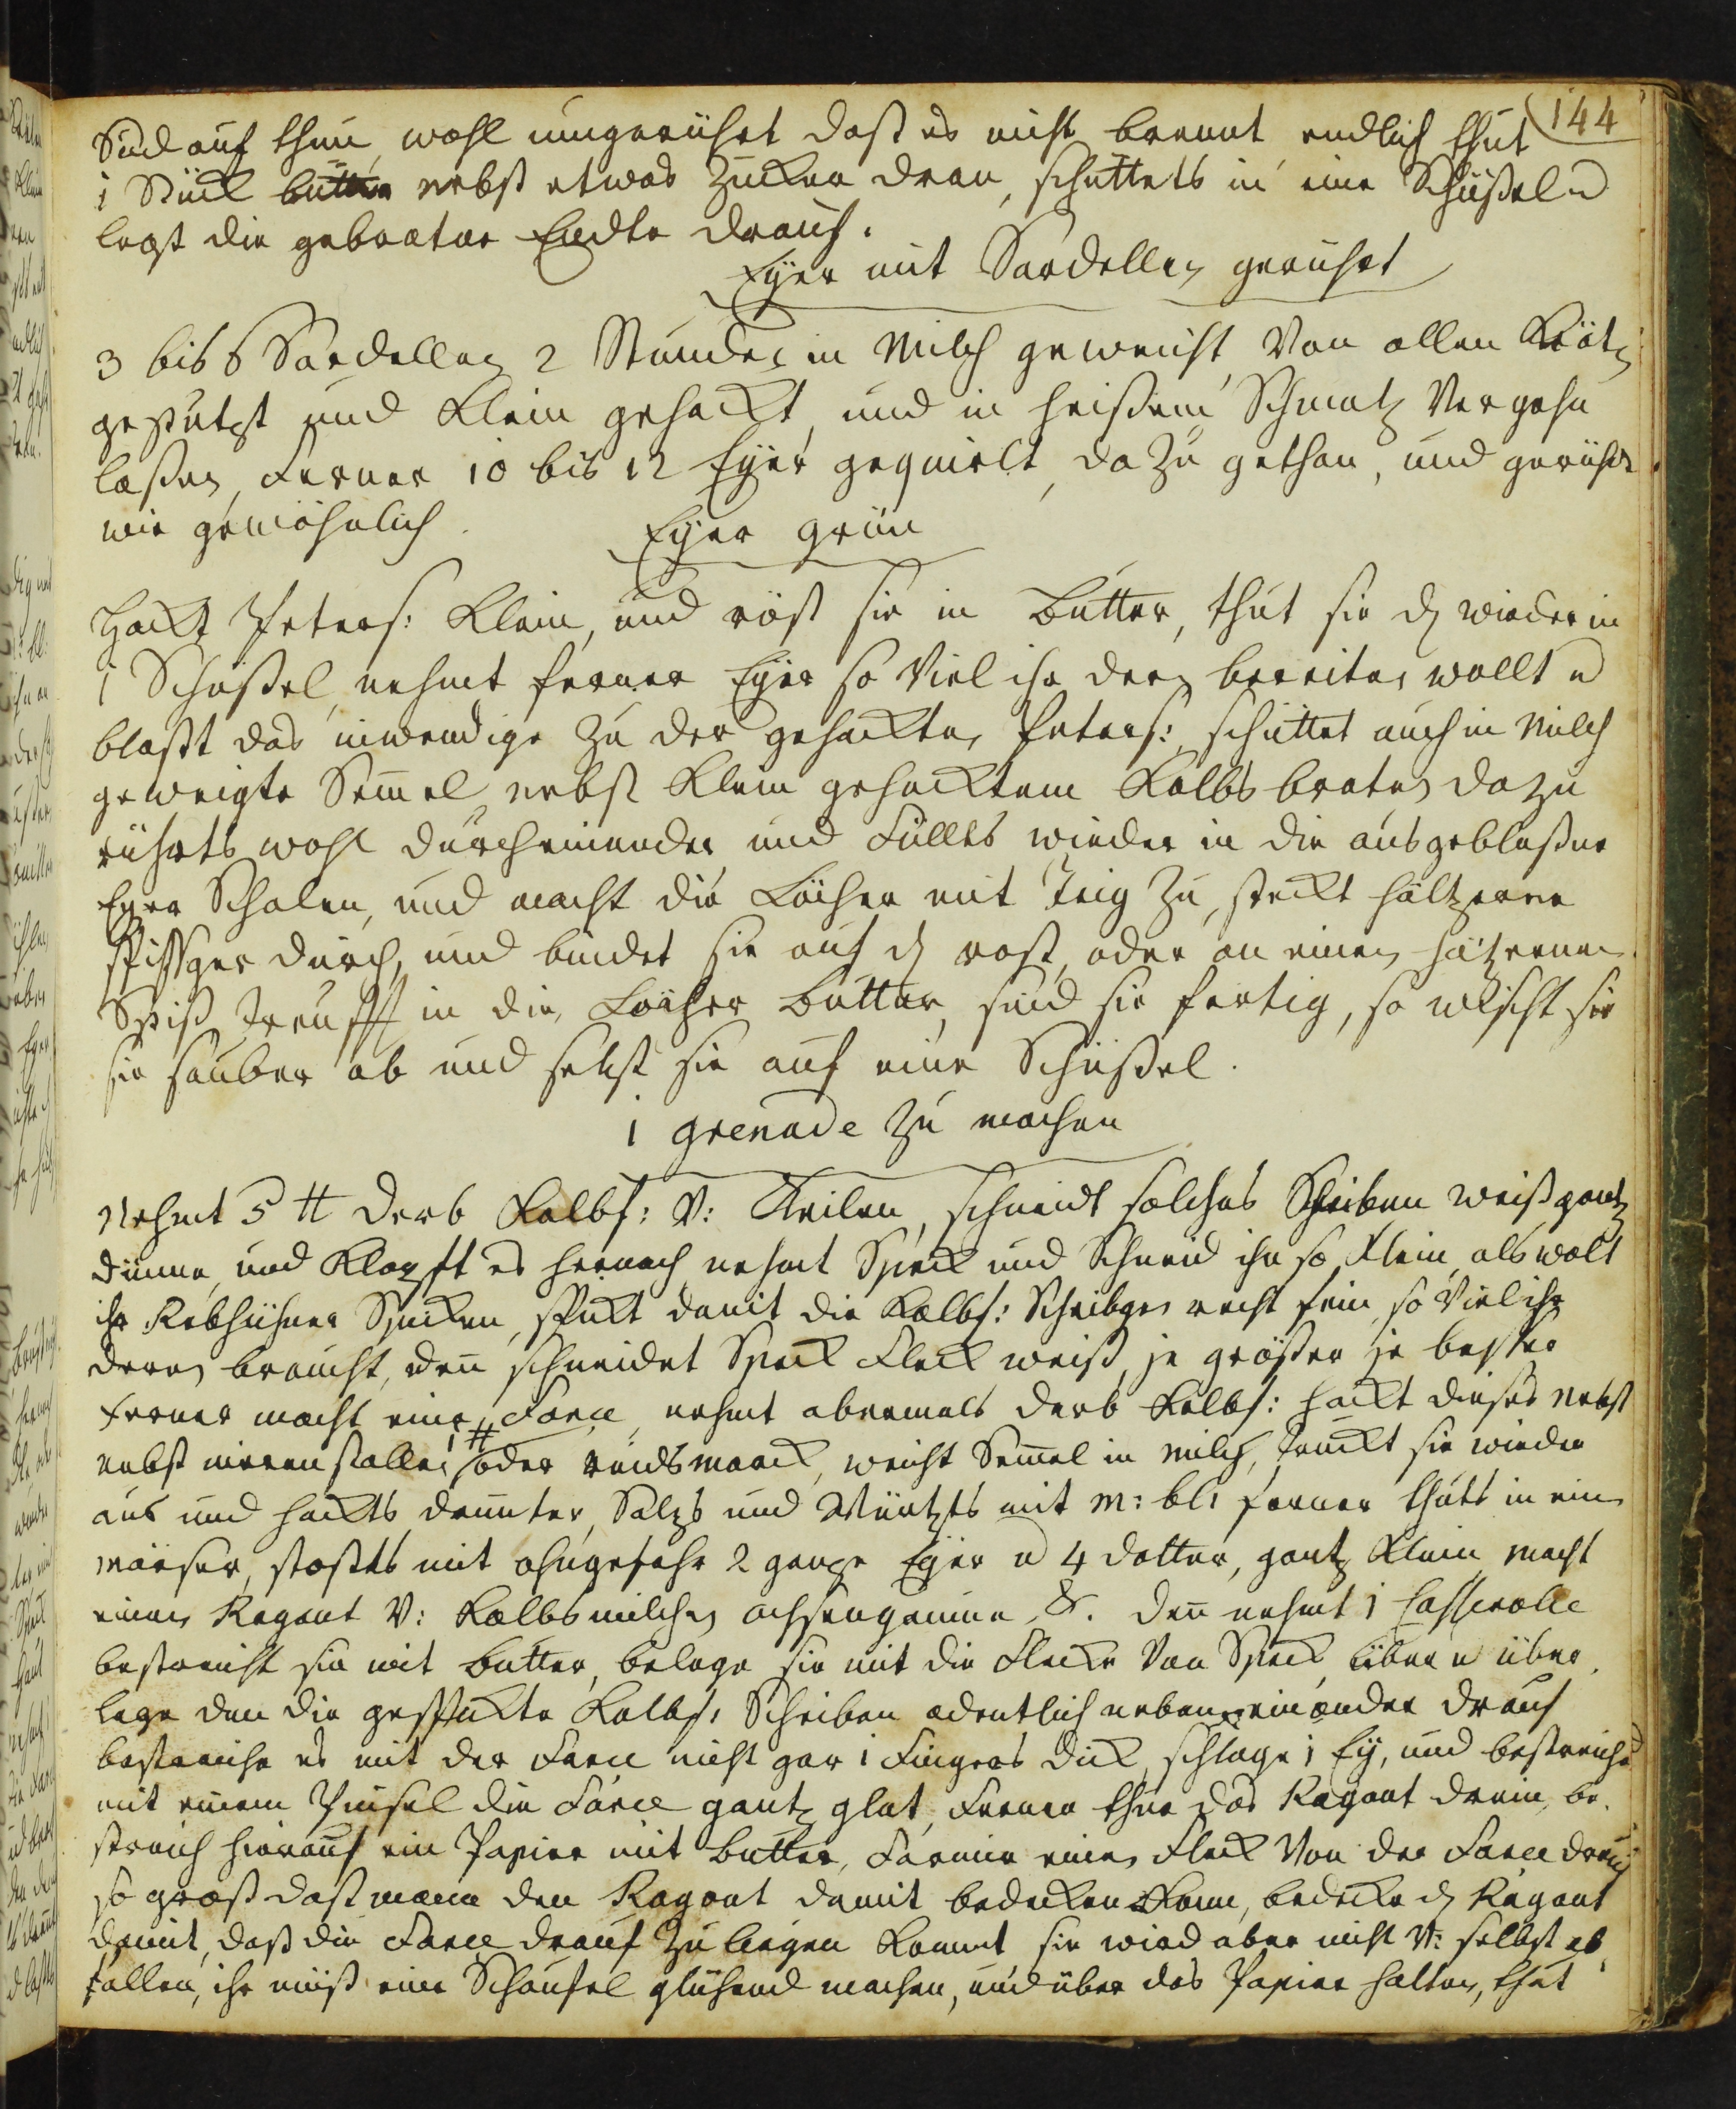 144
Sud auf thun, wohl umgerührt daß es nicht brennt endlich thut
1 Stück butter nebst etwas Zucker dran, schüttets in eine Schüßel u
legt die gebratne Endte drauf.
Eyer mit Sardellen gerührt
3 bis 6 Sardellen 2 Stunden in Milch geweicht, Von allen Gräten
gepützt und Klein gehackt, und in heißem Schmaltz Vergehn
laßen, Ferner 10 bis 12 Eyer gequirlt, dazu gethan, und gerührt
wie gewöhnlich.
Eyer grün
Hackt Peters: Klein, und röst sie in butter, thut sie wieder in
1 Schüßel, nehmt ferner Eyer so Viel ihr derer bereiten wollt u
blaßt das inwendige Zu der gehackten Peters: schüttet auch in Milch
geweigte Semmel nebst Klein gehacktem Kalbs braten dazu
rührts wohl durcheinander und Füllts wieder in die ausgeblaßne
Eyer Schalen, und macht die Löcher mit Teig Zu, steckt höltzerne
spißger durch, und bindet sie auf rost, oder an einen höltzernen
Spiß, treufft in die Löcher butter, sind sie fertig, so wischt sie
sie sauber ab und setzt sie auf eine Schüßel.
1 grenade Zu machen
Nehmt 5 ℔ derb Kalbf: V: Keilen, schneidt solches Scheiben weiß gantz
dünne, und Klopft es hernach nehmt Speck und Schneid ihn so Klein als wolt
ihr Rebhüner Spicken, spickt damit die Kalbf: Scheibgen recht fein, so Viel ihr
deren braucht, denn schneidet Speck Fleck weiß, je größer je beßer
Ferner macht eine Farce, nehmt abermals derb Kalbf: hackt dieses nebst
nebst nieren stollen 1 ℔ oder rindsmarck, weicht Semmel in Milch, druckt sie wieder
aus und hackts drunter, Saltzs und Würtzts mit M: bl: ferner thuts in ein
Mörser, stoßts mit ohngefehr 2 gantze Eyer u 4 dotter, gantz Klein, macht
einen Ragout V: Kalbsmilchen ochsengaume &. denn nehmt 1 Casserolle
bestreicht sie mit butter, belege sie mit die Flecke Von Speck über u über
lege den die gespickte Kalbf: Scheiben ordentlich neben einander drauf
bestreiche es mit der Farce nicht gar 1 Fingers dick, schlage 1 Ey, und bestreiche
mit einem Pinsel die Farce gantz glat, Ferner thue das Ragout drein, be-
streich hierauf ein Papier mit butter, Formir einen Fleck Von der Farce drauf
so groß daß mann den Ragout damit bedecken Kann, bedecke Ragout
damit, daß die Farce drauf Zu liegen Kommt sie wird aber nicht V: selbst ab
fallen, ihr müß eine Schaufel glühend machen, und über das Papier halten, thut